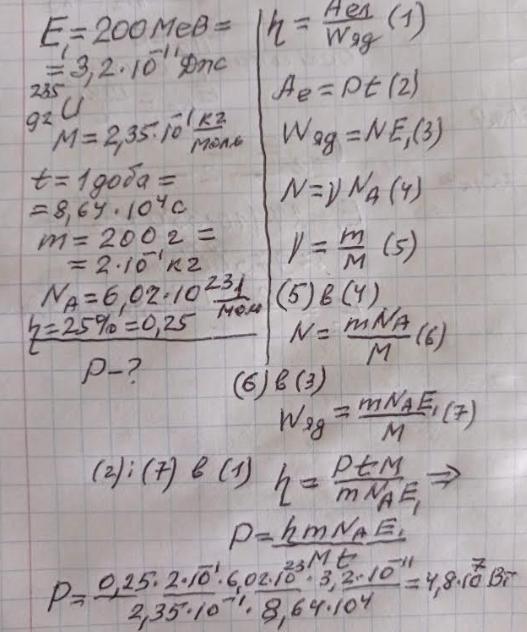 E₁ = 200 МеВ =
= 3,2·10⁻¹¹ Дж
²³⁵₉₂U
M = 2,35·10⁻¹ кг/моль
t = 1 доба =
= 8,64·10⁴ с
m = 200 г =
= 2·10⁻¹ кг
N_A = 6,02·10²³ 1/мол
η = 25% = 0,25
P - ?
η = Aел/Wяд (1)
Aе = Pt (2)
Wяд = NE₁ (3)
N = γN_A (4)
γ = m/M (5)
(5) в (4)
N = mN_A/M (6)
(6) в (3)
Wяд = mN_AE₁/M (7)
(2) і (7) в (1) η = PtM/mN_AE₁ ⇒
P = ηmN_AE₁/Mt
P = 0,25·2·10⁻¹·6,02·10²³·3,2·10⁻¹¹/2,35·10⁻¹·8,64·10⁴ = 4,8·10⁷ Вт